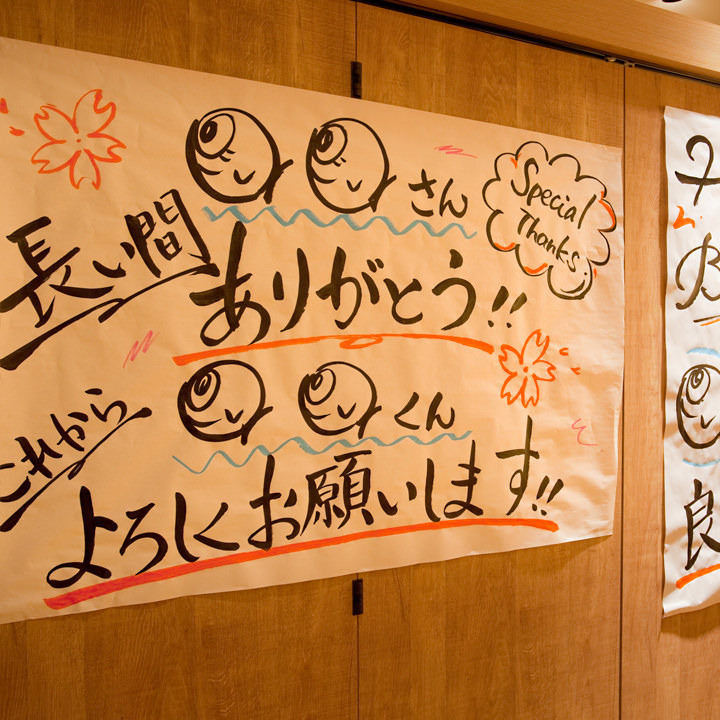 さん
Special
Thanks.
長い間
ありがとう!!
くん
これから
よろしくお願いします!!
良